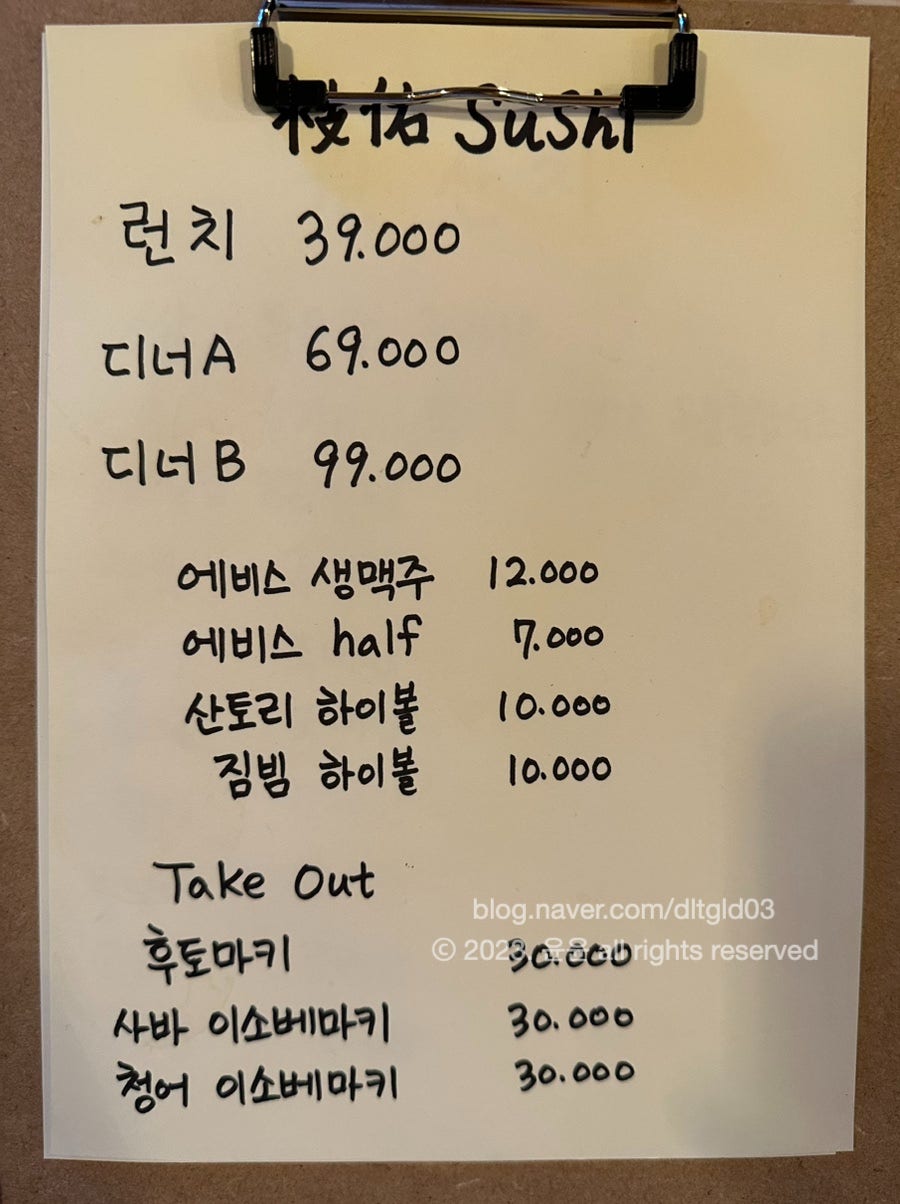 枝佑 Sushi
런치 39.000
디너A 69.000
디너B 99.000
에비스 생맥주 12.000
에비스 half 7.000
산토리 하이볼 10.000
짐빔 하이볼 10.000
Take Out
blog.naver.com/dltgld03
후토마키 30.000
© 2023. all rights reserved
사바 이소베마키 30.000
청어 이소베마키 30.000